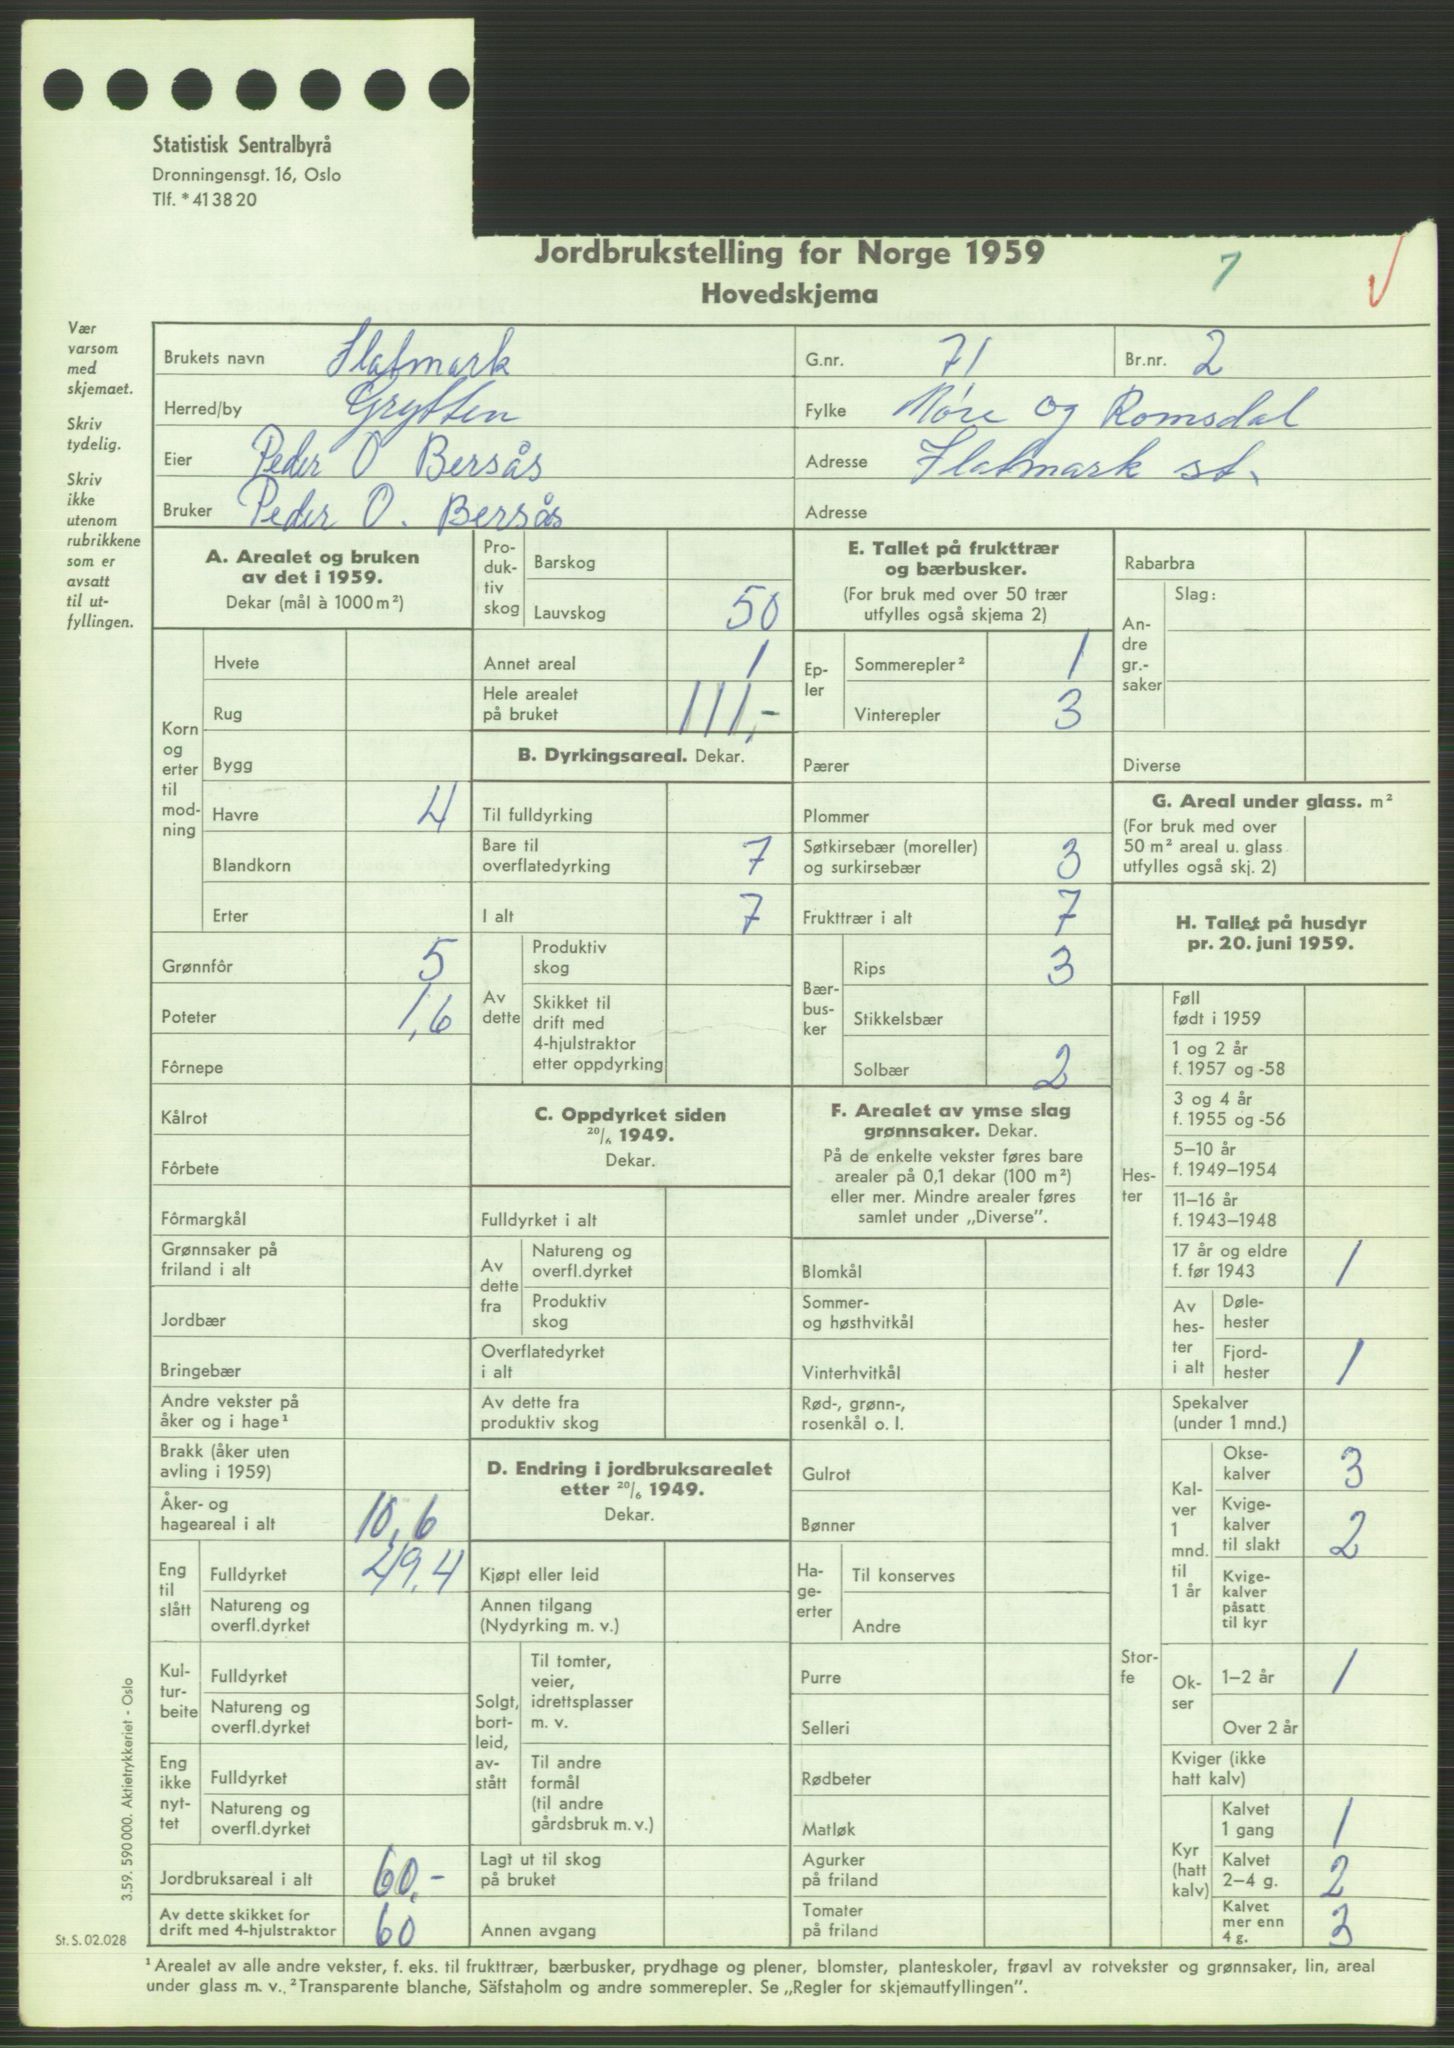 Statistisk Sentralbyrå
Dronningensgt. 16, Oslo
Tlf. * 41 38 20
Jordbrukstelling for Norge 1959
Hovedskjema
7
Vær varsom med skjemaet.
Skriv tydelig.
Skriv ikke utenom rubrikkene som er avsatt til utfyllingen.
Brukets navn Flatmark G.nr. 71 Br.nr. 2
Herred/by Grytten Fylke Møre og Romsdal
Eier Peder O Bersås Adresse Flatmark st.
Bruker Peder O. Bersås Adresse
A. Arealet og bruken
av det i 1959.
Dekar (mål à 1000 m²)
Korn og erter til modning
Hvete
Rug
Bygg
Havre 4
Blandkorn
Erter
Grønnfôr 5
Poteter 1,6
Fôrnepe
Kålrot
Fôrbete
Fôrmargkål
Grønnsaker på
friland i alt
Jordbær
Bringebær
Andre vekster på
åker og i hage¹
Brakk (åker uten
avling i 1959)
Åker- og
hageareal i alt 10,6
Eng til slått
Fulldyrket 49,4
Natureng og
overfl.dyrket
Kulturbeite
Fulldyrket
Natureng og
overfl.dyrket
Eng ikke nyttet
Fulldyrket
Natureng og
overfl.dyrket
Jordbruksareal i alt 60,-
Av dette skikket for
drift med 4-hjulstraktor 60
Produktiv skog
Barskog
Lauvskog 50
Annet areal 1
Hele arealet
på bruket 111,-
B. Dyrkingsareal. Dekar.
Til fulldyrking
Bare til
overflatedyrking 7
I alt 7
Av dette
Produktiv
skog
Skikket til
drift med
4-hjulstraktor
etter oppdyrking
C. Oppdyrket siden
20/6 1949.
Dekar.
Fulldyrket i alt
Av dette fra
Natureng og
overfl.dyrket
Produktiv
skog
Overflatedyrket
i alt
Av dette fra
produktiv skog
D. Endring i jordbruksarealet
etter 20/6 1949.
Dekar.
Kjøpt eller leid
Annen tilgang
(Nydyrking m. v.)
Solgt, bortleid, avstått
Til tomter,
veier,
idrettsplasser
m. v.
Til andre
formål
(til andre
gårdsbruk m. v.)
Lagt ut til skog
på bruket
Annen avgang
E. Tallet på frukttrær
og bærbusker.
(For bruk med over 50 trær
utfylles også skjema 2)
Epler
Sommerepler² 1
Vinterepler 3
Pærer
Plommer
Søtkirsebær (moreller)
og surkirsebær 3
Frukttrær i alt 7
Bærbusker
Rips 3
Stikkelsbær
Solbær 2
F. Arealet av ymse slag
grønnsaker. Dekar.
På de enkelte vekster føres bare
arealer på 0,1 dekar (100 m²)
eller mer. Mindre arealer føres
samlet under „Diverse”.
Blomkål
Sommer-
og høsthvitkål
Vinterhvitkål
Rød-, grønn-,
rosenkål o. l.
Gulrot
Bønner
Hageerter
Til konserves
Andre
Purre
Selleri
Rødbeter
Matløk
Agurker
på friland
Tomater
på friland
Rabarbra
Andre gr.-saker
Slag:
Diverse
G. Areal under glass. m²
(For bruk med over
50 m² areal u. glass
utfylles også skj. 2)
H. Tallet på husdyr
pr. 20. juni 1959.
Hester
Føll
født i 1959
1 og 2 år
f. 1957 og -58
3 og 4 år
f. 1955 og -56
5–10 år
f. 1949–1954
11–16 år
f. 1943–1948
17 år og eldre
f. før 1943 1
Av hester i alt
Dølehester
Fjordhester 1
Storfe
Spekalver
(under 1 mnd.)
Kalver 1 mnd. til 1 år
Oksekalver 3
Kvigekalver
til slakt 2
Kvigekalver
påsatt
til kyr
Okser
1–2 år 1
Over 2 år
Kviger (ikke
hatt kalv)
Kyr (hatt kalv)
Kalvet
1 gang 1
Kalvet
2–4 g. 2
Kalvet
mer enn
4 g. 3
3.59. 590 000. Aktietrykkeriet - Oslo
St. S. 02.028
¹ Arealet av alle andre vekster, f. eks. til frukttrær, bærbusker, prydhage og plener, blomster, planteskoler, frøavl av rotvekster og grønnsaker, lin, areal
under glass m. v. ² Transparente blanche, Säfstaholm og andre sommerepler. Se „Regler for skjemautfyllingen”.